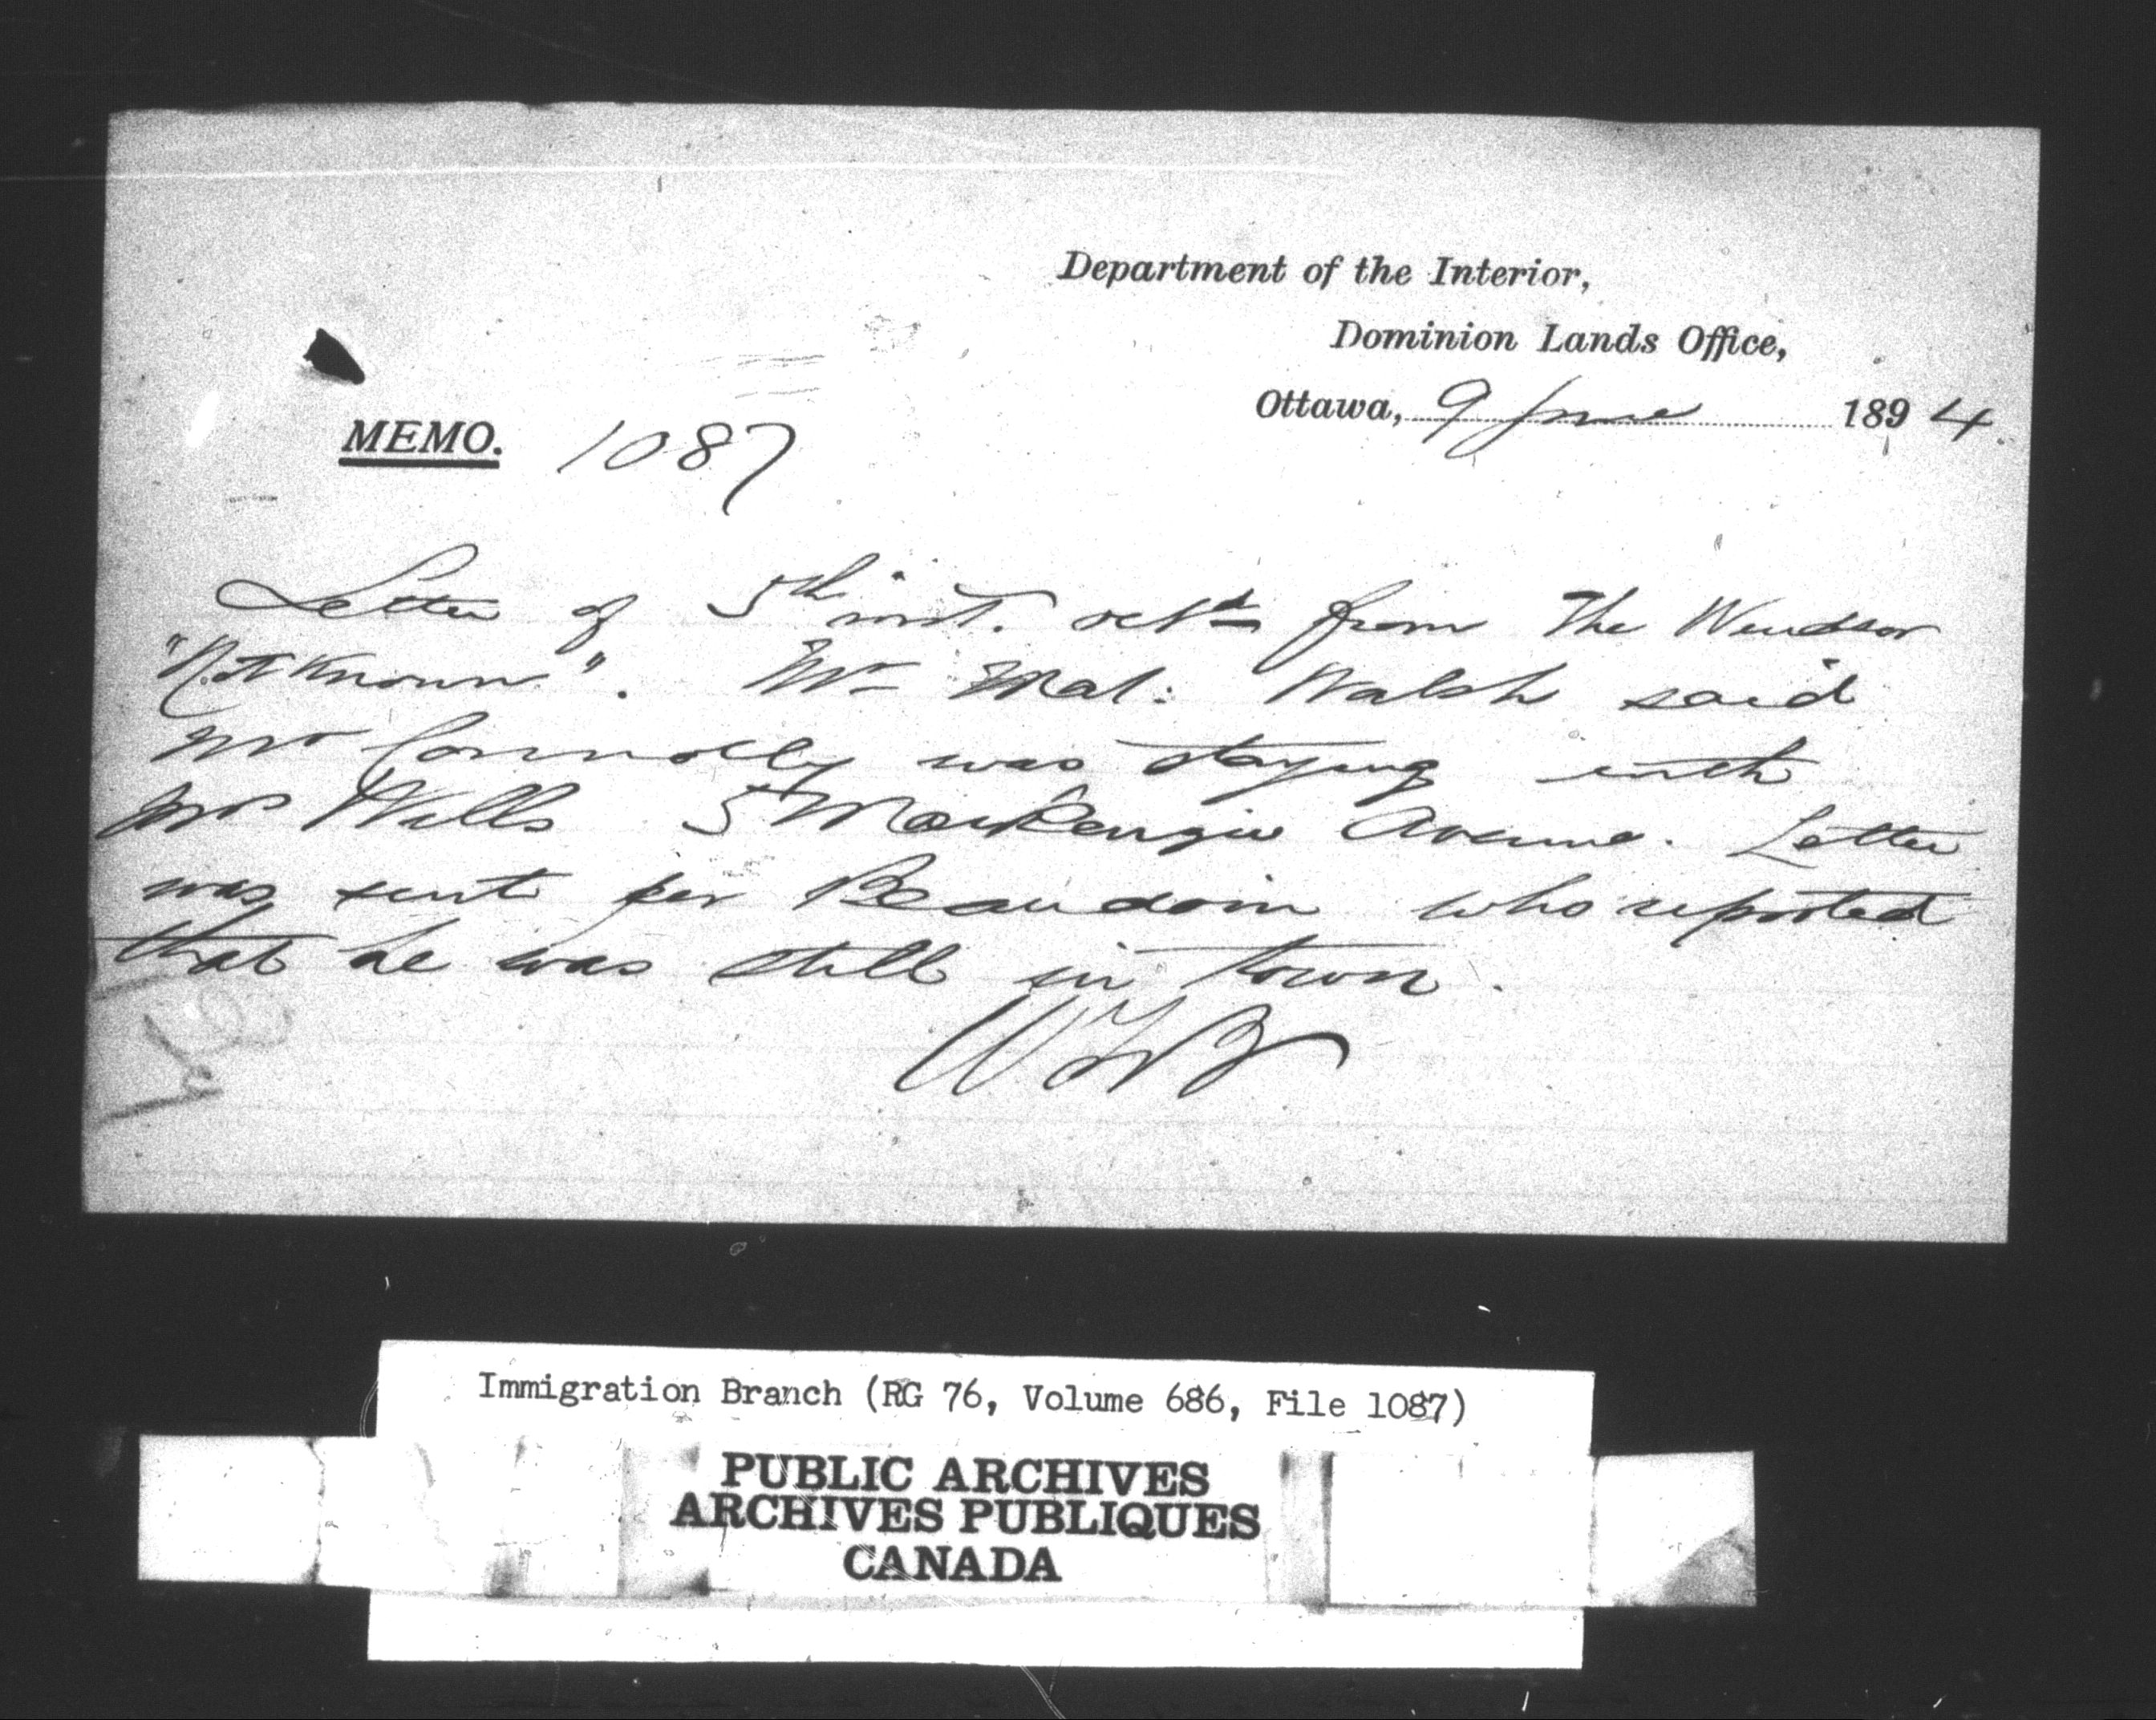 Department of the Interior,
Dominion Lands Office,
Ottawa, 9 June 1894.
MEMO. 1087
Letter of 5th inst. retd from The Windsor
"Not Known". Mr Mal: Walsh said
Mr Connolly was staying with
Mrs Wills 5 MacKenzie Avenue. Letter
was sent per Beaudoin who reported
that he was still in town.
Immigration Branch (RG 76, Volume 686, File 1087)
PUBLIC ARCHIVES
ARCHIVES PUBLIQUES
CANADA